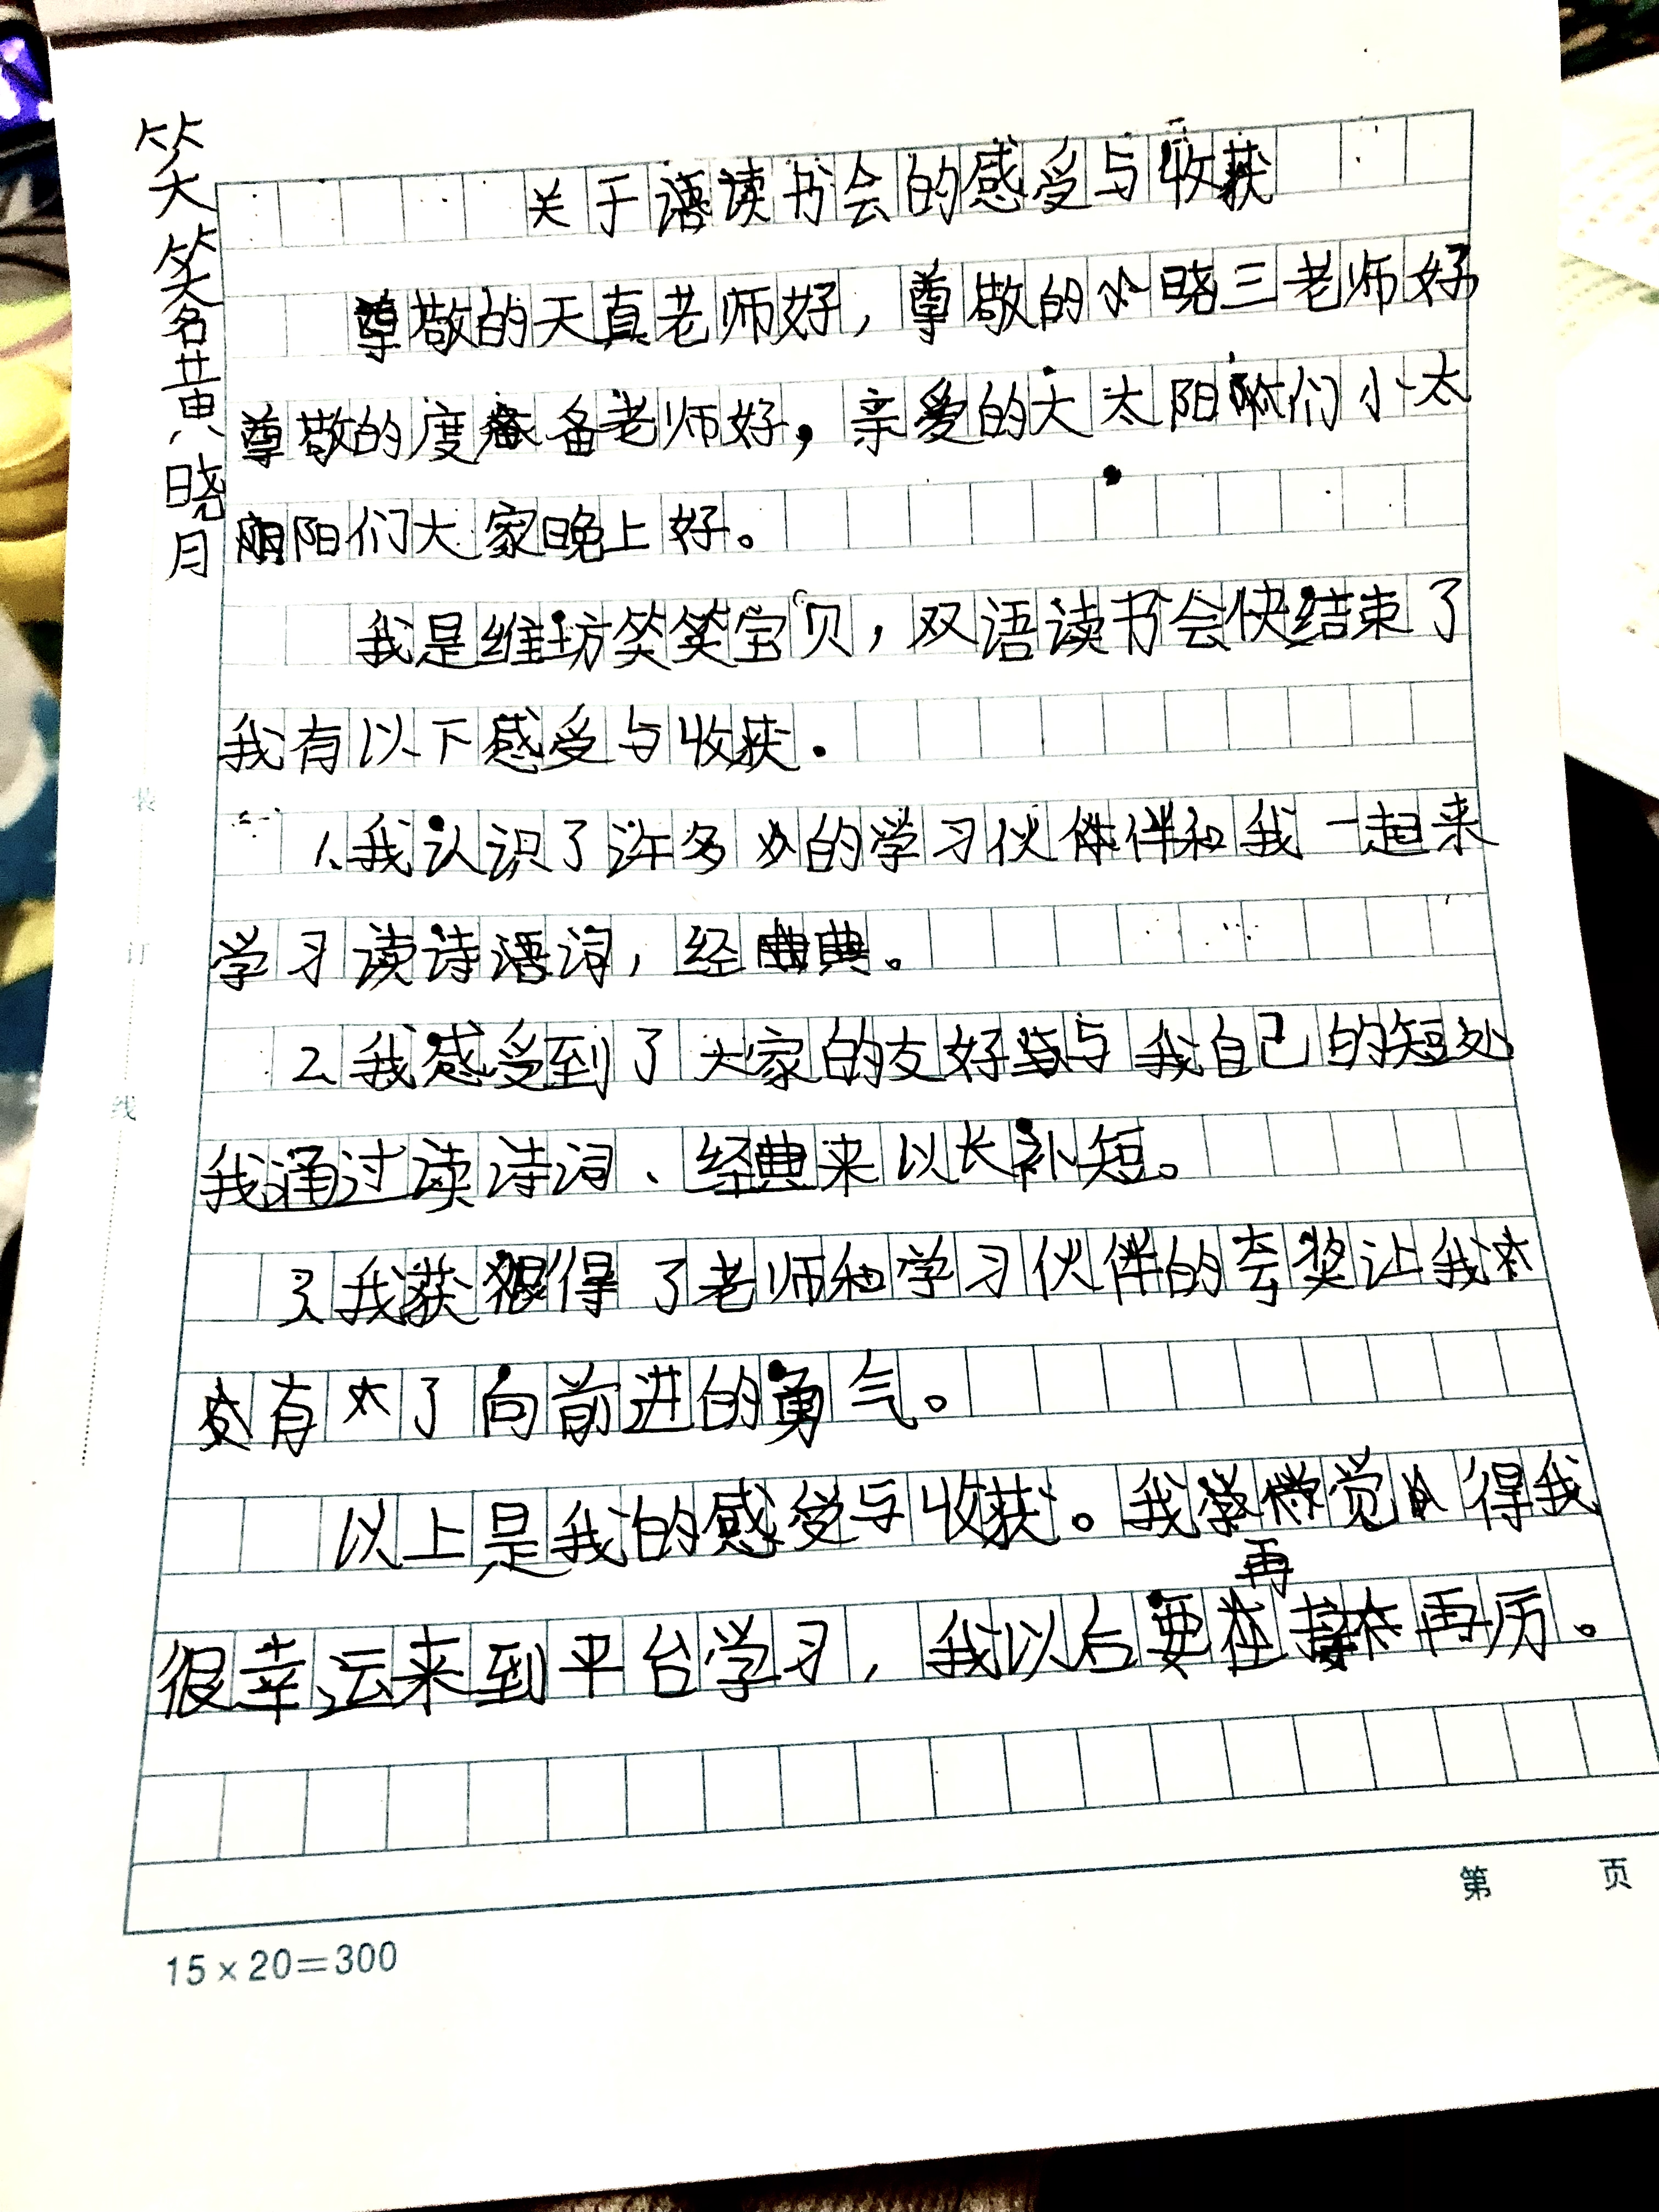 笑笑名黄晓月
关于语读书会的感受与收获
尊敬的天真老师好，尊敬的晓三老师好
尊敬的度备老师好，亲爱的大太阳们小太
阳们大家晚上好。
我是维坊笑笑宝贝，双语读书会快结束了
我有以下感受与收获.
1、我认识了许多的学习伙伴和我一起来
学习读诗词，经典。
2、我感受到了大家的友好与我自己的短处
我通过读诗词、经典来以长补短。
3、我获得了老师和学习伙伴的夸奖让我
有了向前进的勇气。
以上是我的感受与收获。我觉得我
很幸运来到平台学习，我以后要再接再厉。
装
订
线
第 页
15×20=300